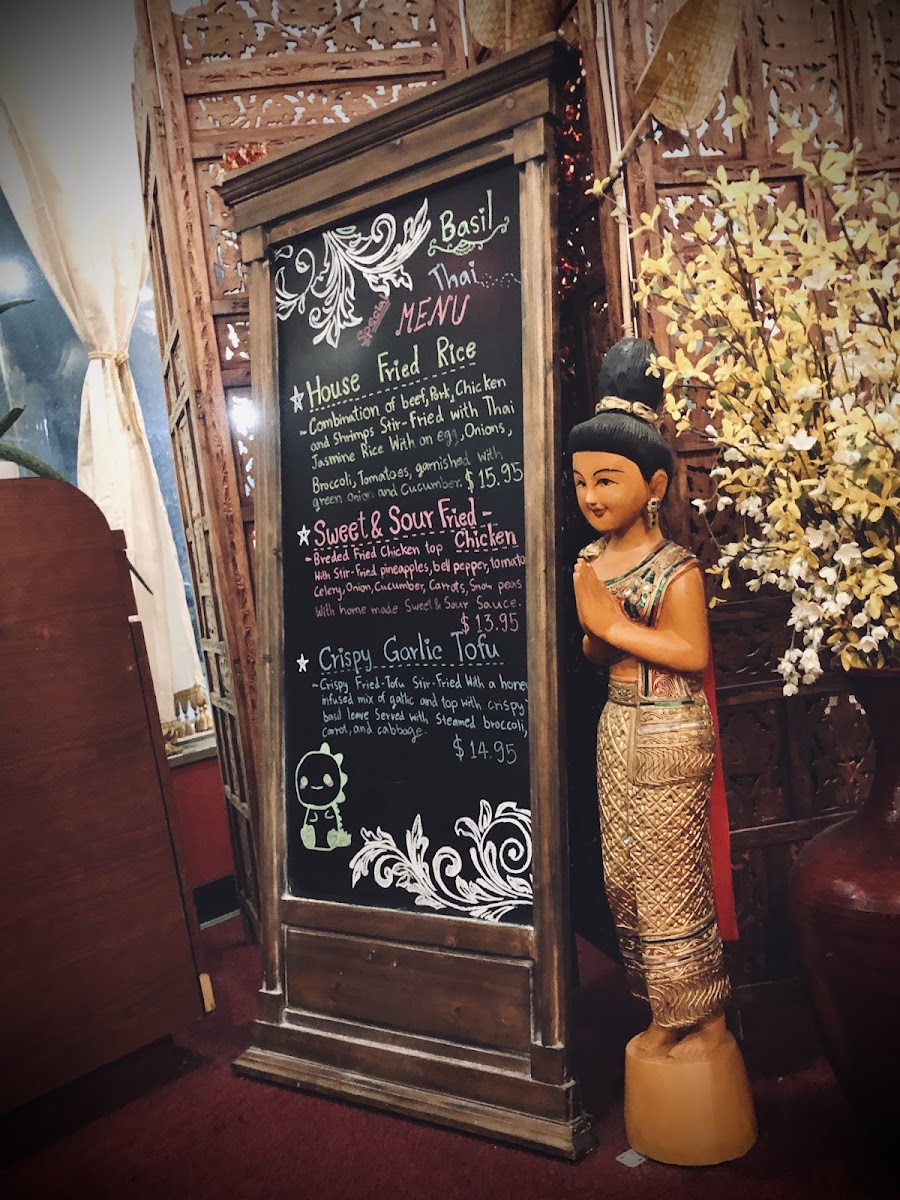 Basil
Thai
Special MENU
House Fried Rice
- Combination of beef, Pork, Chicken
and Shrimps Stir-Fried with Thai
Jasmine Rice With an egg, Onions,
Broccoli, Tomatoes, garnished with
green Onion and Cucumber. $15.95
Sweet & Sour Fried -
Chicken
- Breded Fried Chicken top
With Stir-Fried pineapples, bell pepper, tomato
Celery, Onion, Cucumber, Carrots, Snow peas
With home made Sweet & Sour Sauce.
$13.95
Crispy Garlic Tofu
- Crispy Fried-Tofu Stir-Fried With a hone
infused mix of garlic and top with crispy
basil leave Served with, Steamed broccoli,
Carrot, and cabbage.
$14.95